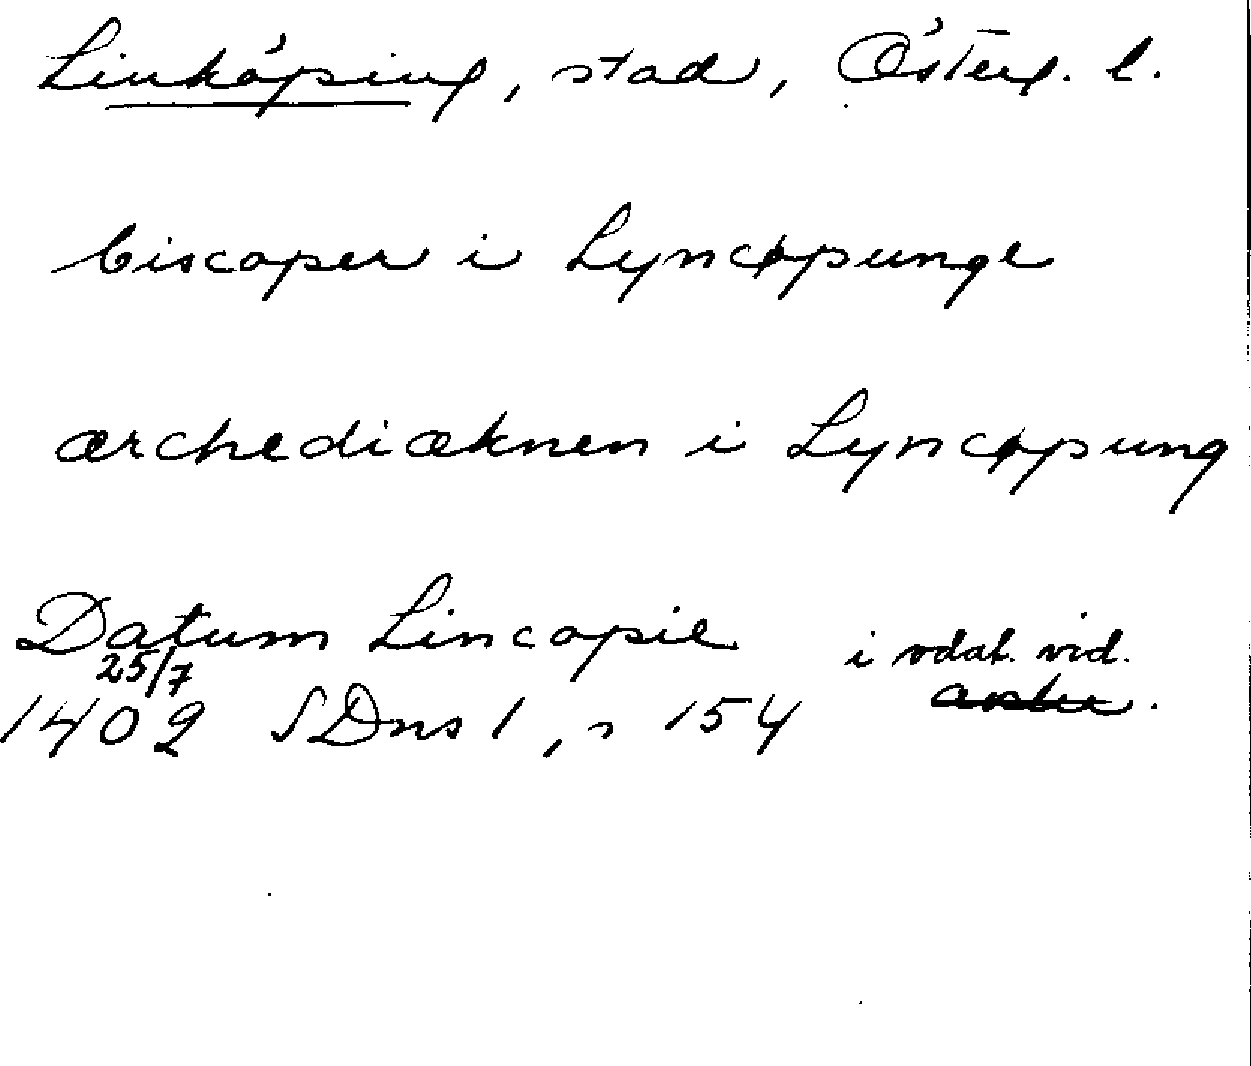 Linköping, stad, Österg. l.
biscoper i Lyncøpunge
ærchediæknen i Lyncøpung
Datum Lincopie i odat. vid.
25/7
1402 SDns 1, s 154